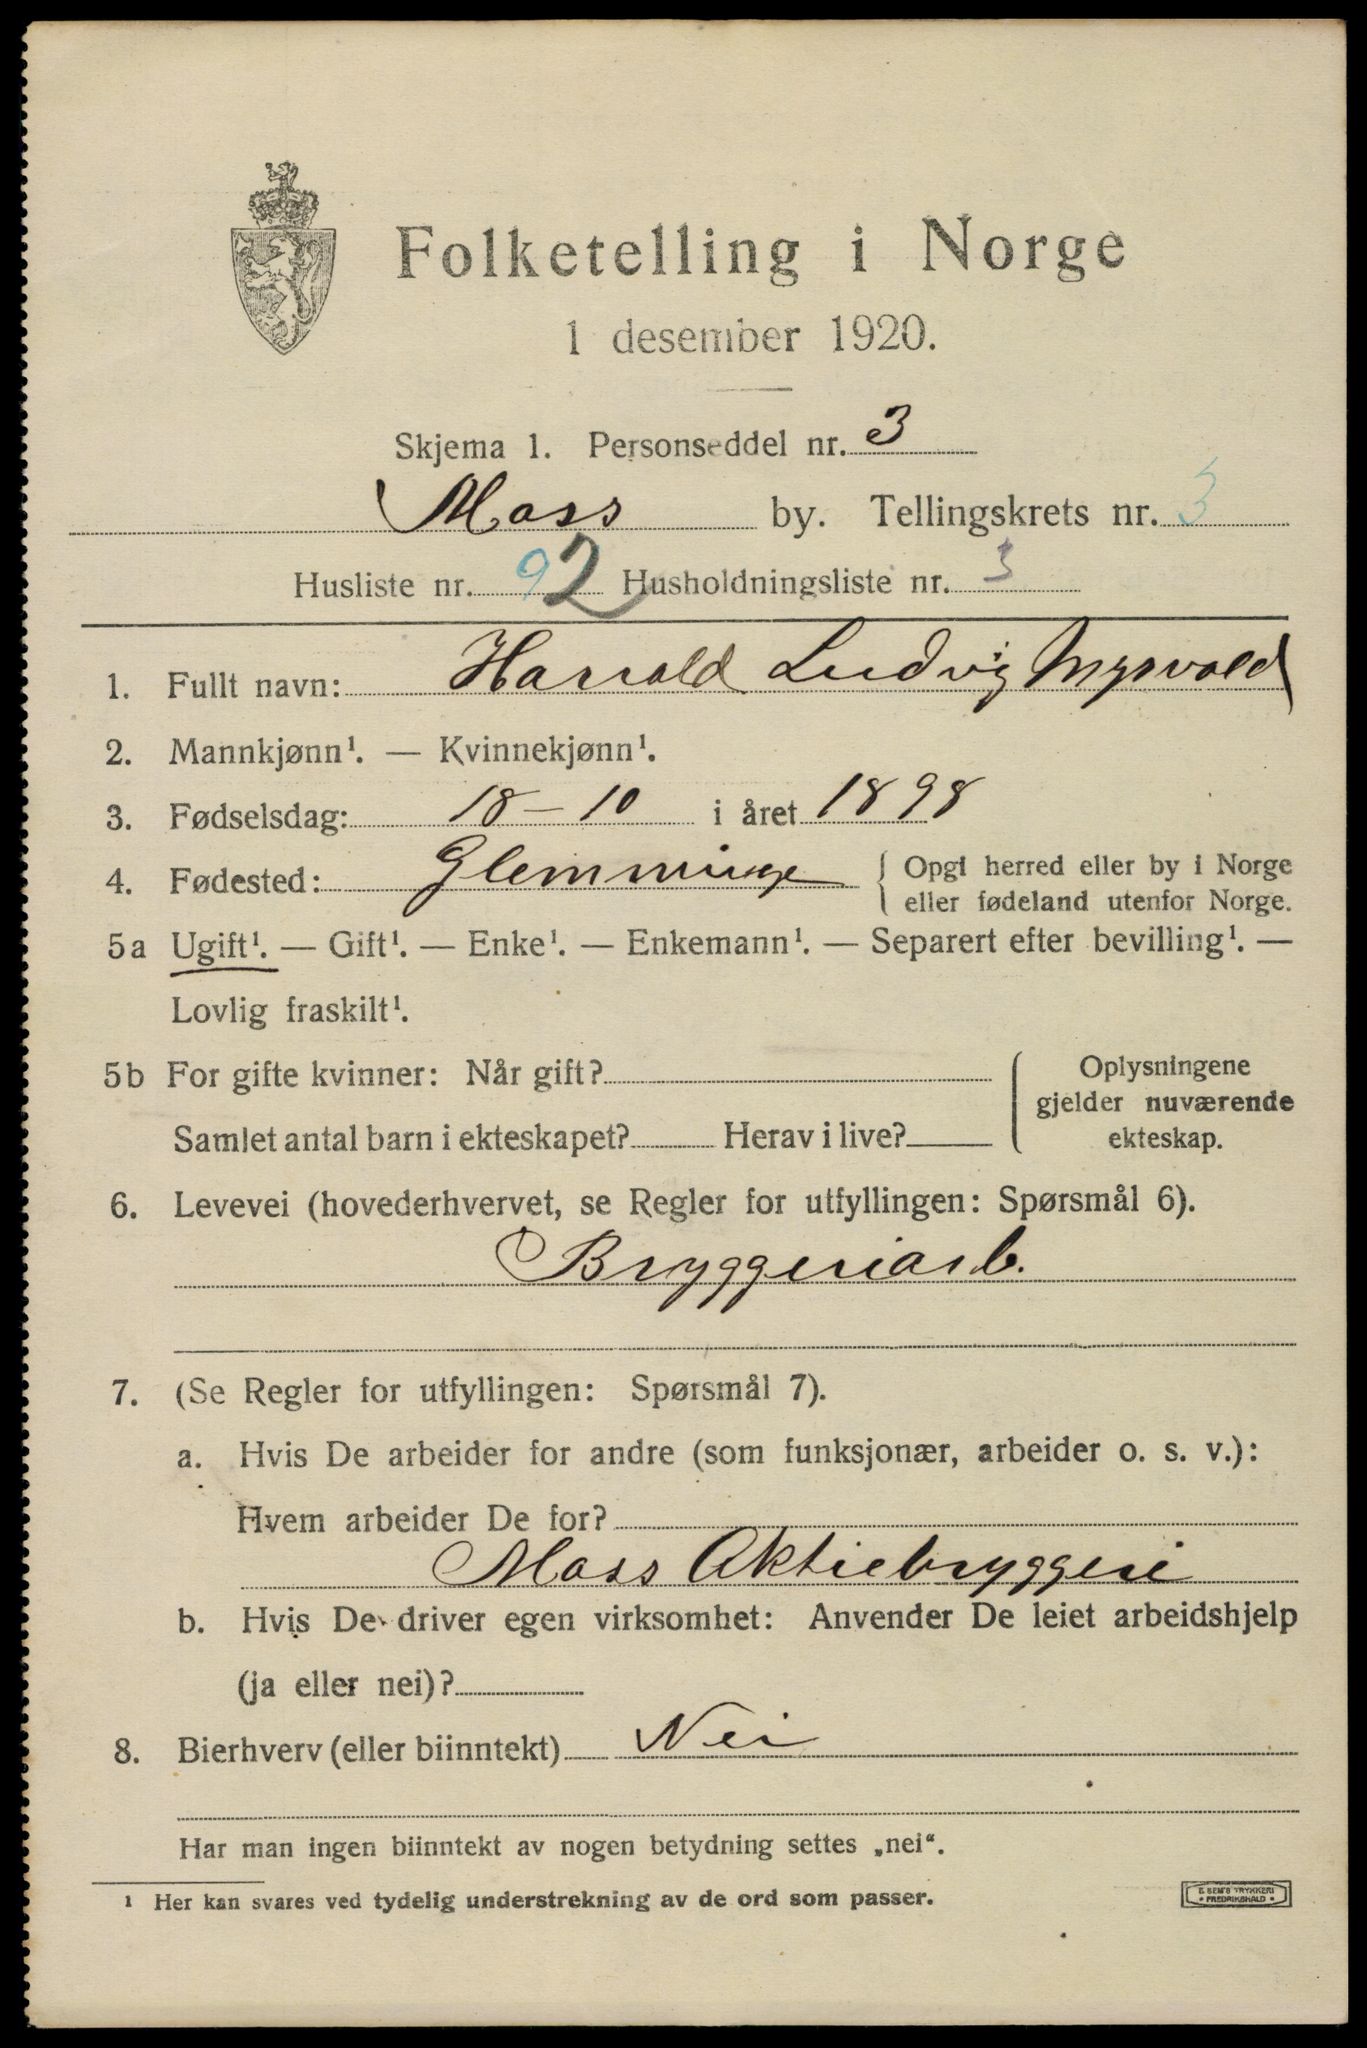 Folketelling i Norge
1 desember 1920.
Skjema 1. Personseddel nr. 3
Moss by. Tellingskrets nr. 3
Husliste nr. 92 Husholdningsliste nr. 3
1. Fullt navn: Harald Ludvig
2. Mannkjønn¹. — Kvinnekjønn¹.
3. Fødselsdag: 18 – 10 i året 1898
4. Fødested: Glemminge { Opgi herred eller by i Norge
eller fødeland utenfor Norge.
5a Ugift¹. — Gift¹. — Enke¹. — Enkemann¹. — Separert efter bevilling¹. —
Lovlig fraskilt¹.
5b For gifte kvinner: Når gift? { Oplysningene
gjelder nuværende
Samlet antal barn i ekteskapet? Herav i live? ekteskap.
6. Levevei (hovederhvervet, se Regler for utfyllingen: Spørsmål 6).
Bryggeriarb.
7. (Se Regler for utfyllingen: Spørsmål 7).
a. Hvis De arbeider for andre (som funksjonær, arbeider o. s. v.):
Hvem arbeider De for?
Moss Aktiebryggeri
b. Hvis De driver egen virksomhet: Anvender De leiet arbeidshjelp
(ja eller nei)?
8. Bierhverv (eller biinntekt) Nei
Har man ingen biinntekt av nogen betydning settes „nei“.
¹ Her kan svares ved tydelig understrekning av de ord som passer.
E SEM'S TRYKKERI
FREDRIKSHALD